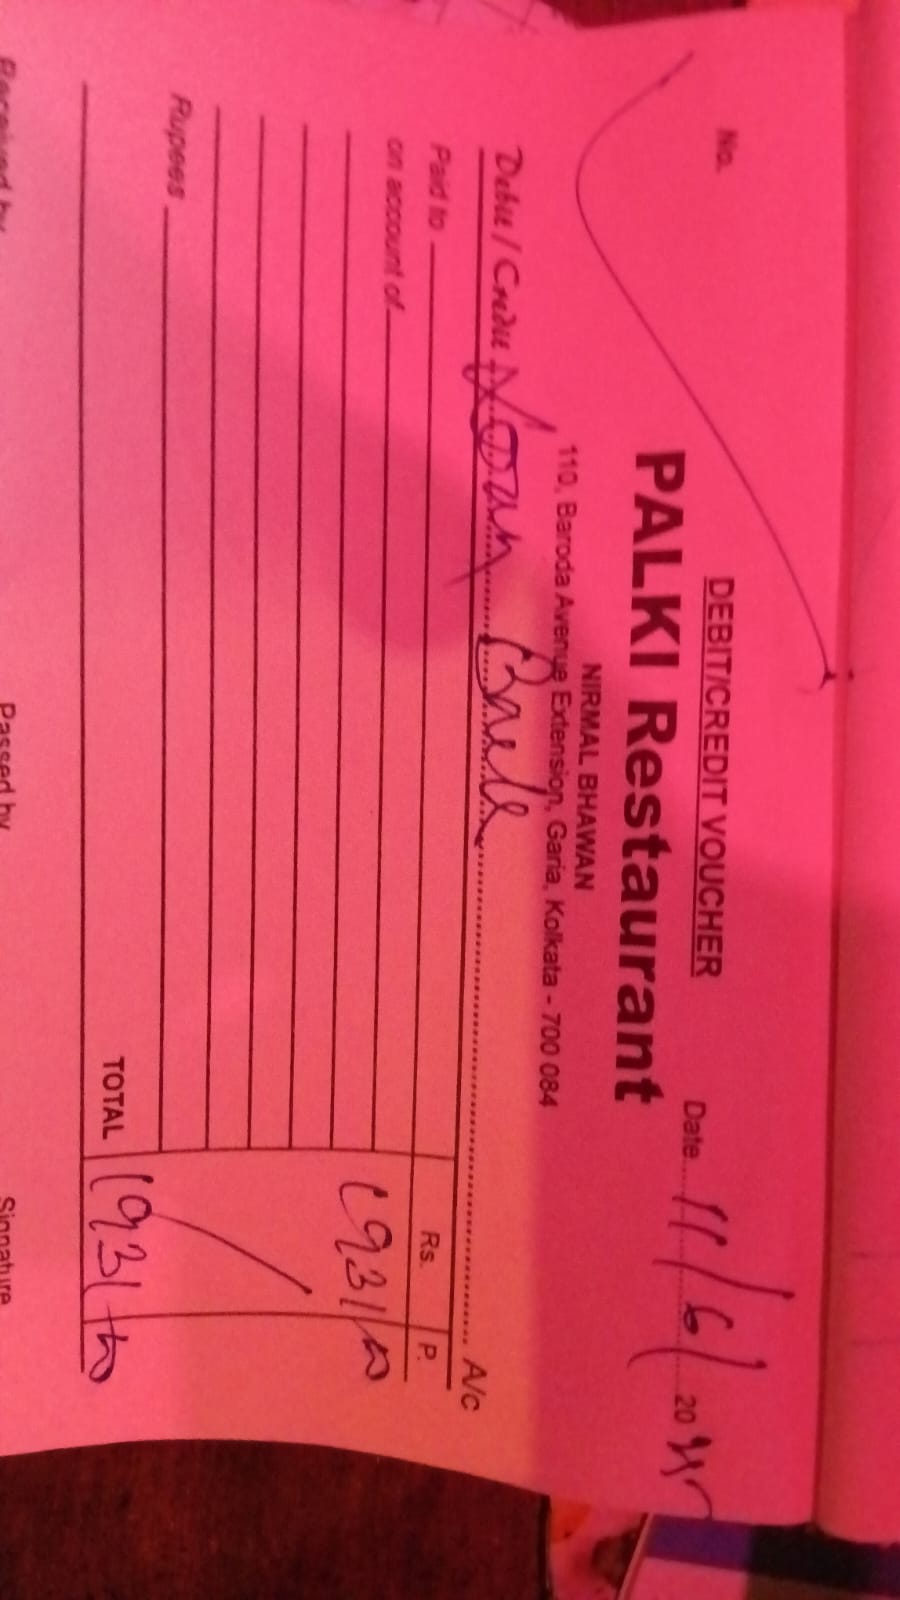 No.
DEBIT/CREDIT VOUCHER
Date 11/6/20
PALKI Restaurant
NIRMAL BHAWAN
110, Baroda Avenue Extension, Garia, Kolkata - 700 084
Debit / Credit A/c
Paid to Rs. P.
on account of
1931
Rupees
TOTAL 1931
Received by Passed by Signature